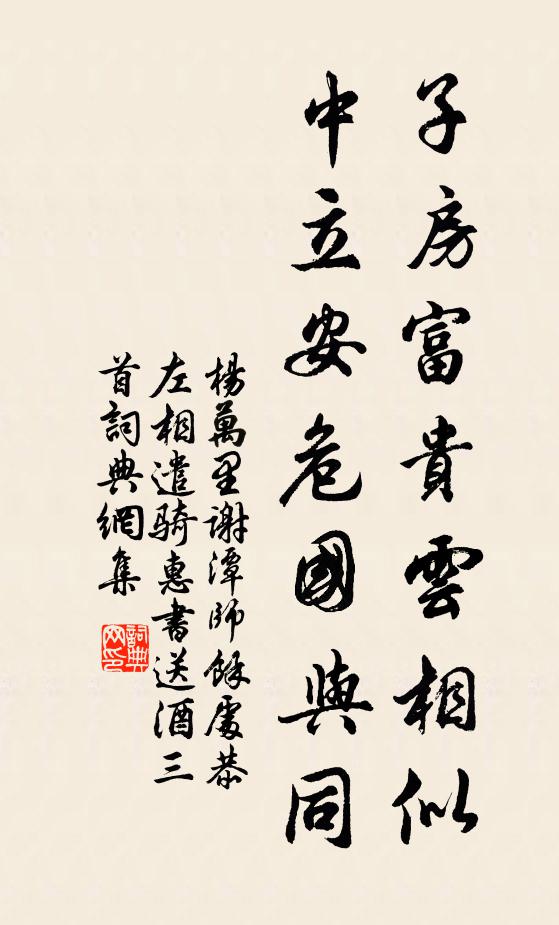 子房富貴雲相似
中立安危國與同
楊萬里謝潭師餘處恭
左相遣騎惠書送酒三
首詞典網集
詞典網印